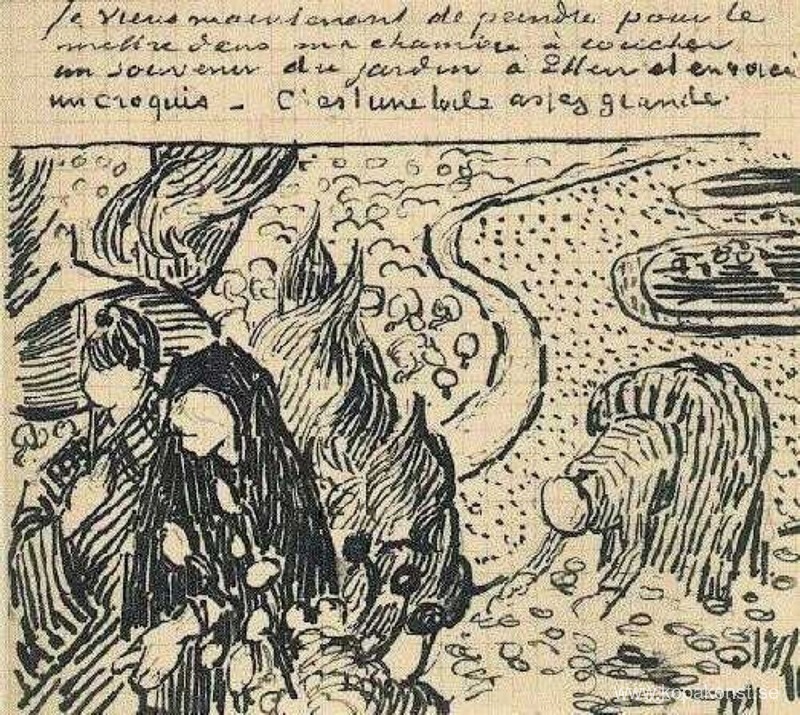 Je viens maintenant de peindre pour le
mettre dans ma chambre à coucher
un souvenir du jardin à Etten et en voici
un croquis – C'est une toile assez grande.
www.kopakonst.se